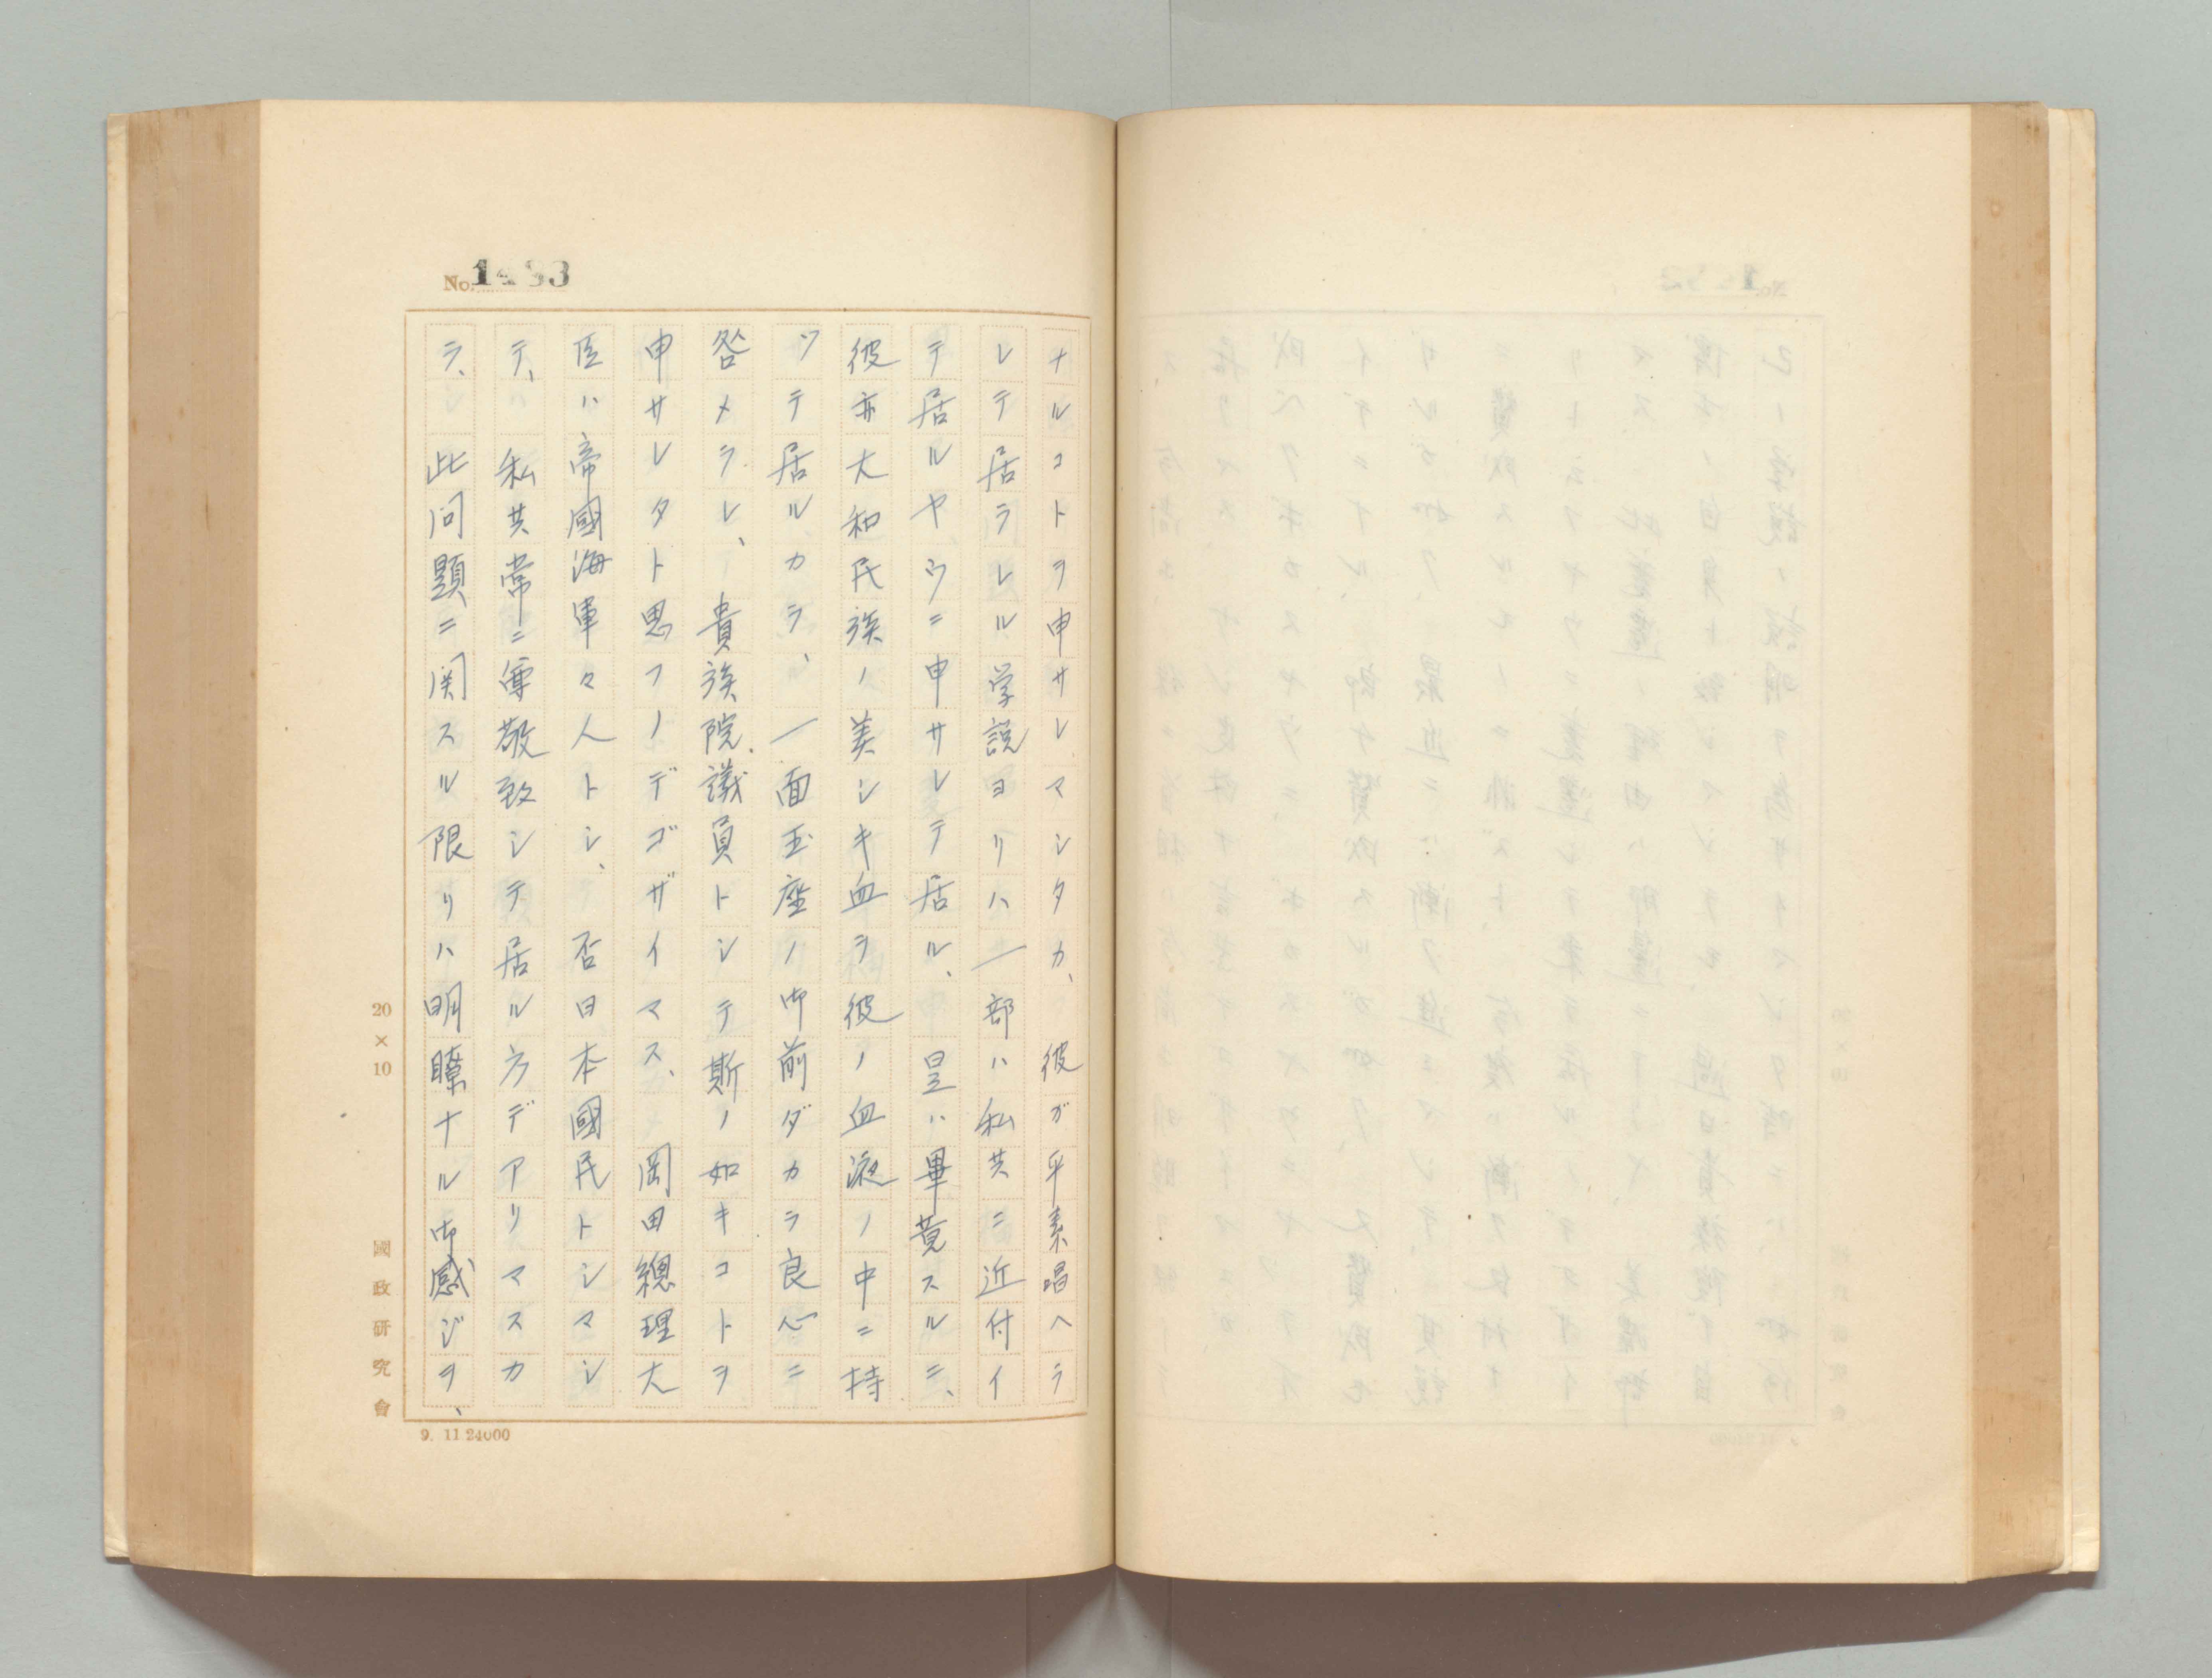 No. 1483
ナルコトヲ申サレマシタカ、彼ガ平素唱ヘラ
レテ居ラレル学説ヨリハ一部ハ私共ニ近付イ
テ居ルヤウニ申サレテ居ル、是ハ畢竟スルニ、
彼亦大和民族ノ美シキ血ヲ彼ノ血液ノ中ニ持
ツテ居ルカラ、一面玉座ノ御前ダカラ良心ニ
咎メラレ、貴族院議員トシテ斯ノ如キコトヲ
申サレタト思フノデゴザイマス、岡田總理大
臣ハ帝國海軍々人トシ、否日本國民トシマシ
テ、私共常ニ尊敬致シテ居ル方デアリマスカ
ラ、此問題ニ関スル限リハ明瞭ナル御感ジヲ、
20×10
國政研究會
9. 11 24000